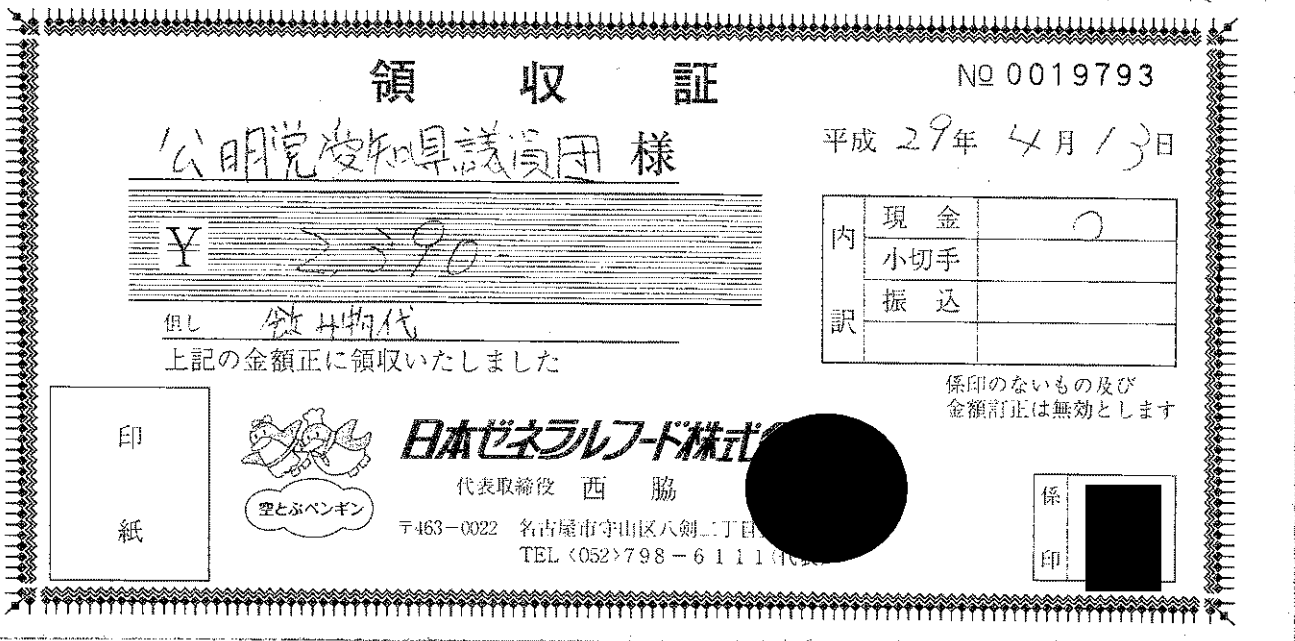 領 収 証
№ 0019793
公明党愛知県議員団 様
平成 29年 4月 13日
¥ 2,390-
但し 飲み物代
上記の金額正に領収いたしました
内訳
現 金 ○
小切手
振 込
係印のないもの及び
金額訂正は無効とします
印
紙
空とぶペンギン
日本ゼネラルフード株式
代表取締役 西 脇
〒463-0022 名古屋市守山区八剣二丁目
TEL〈052〉798-6111(代表)
係
印